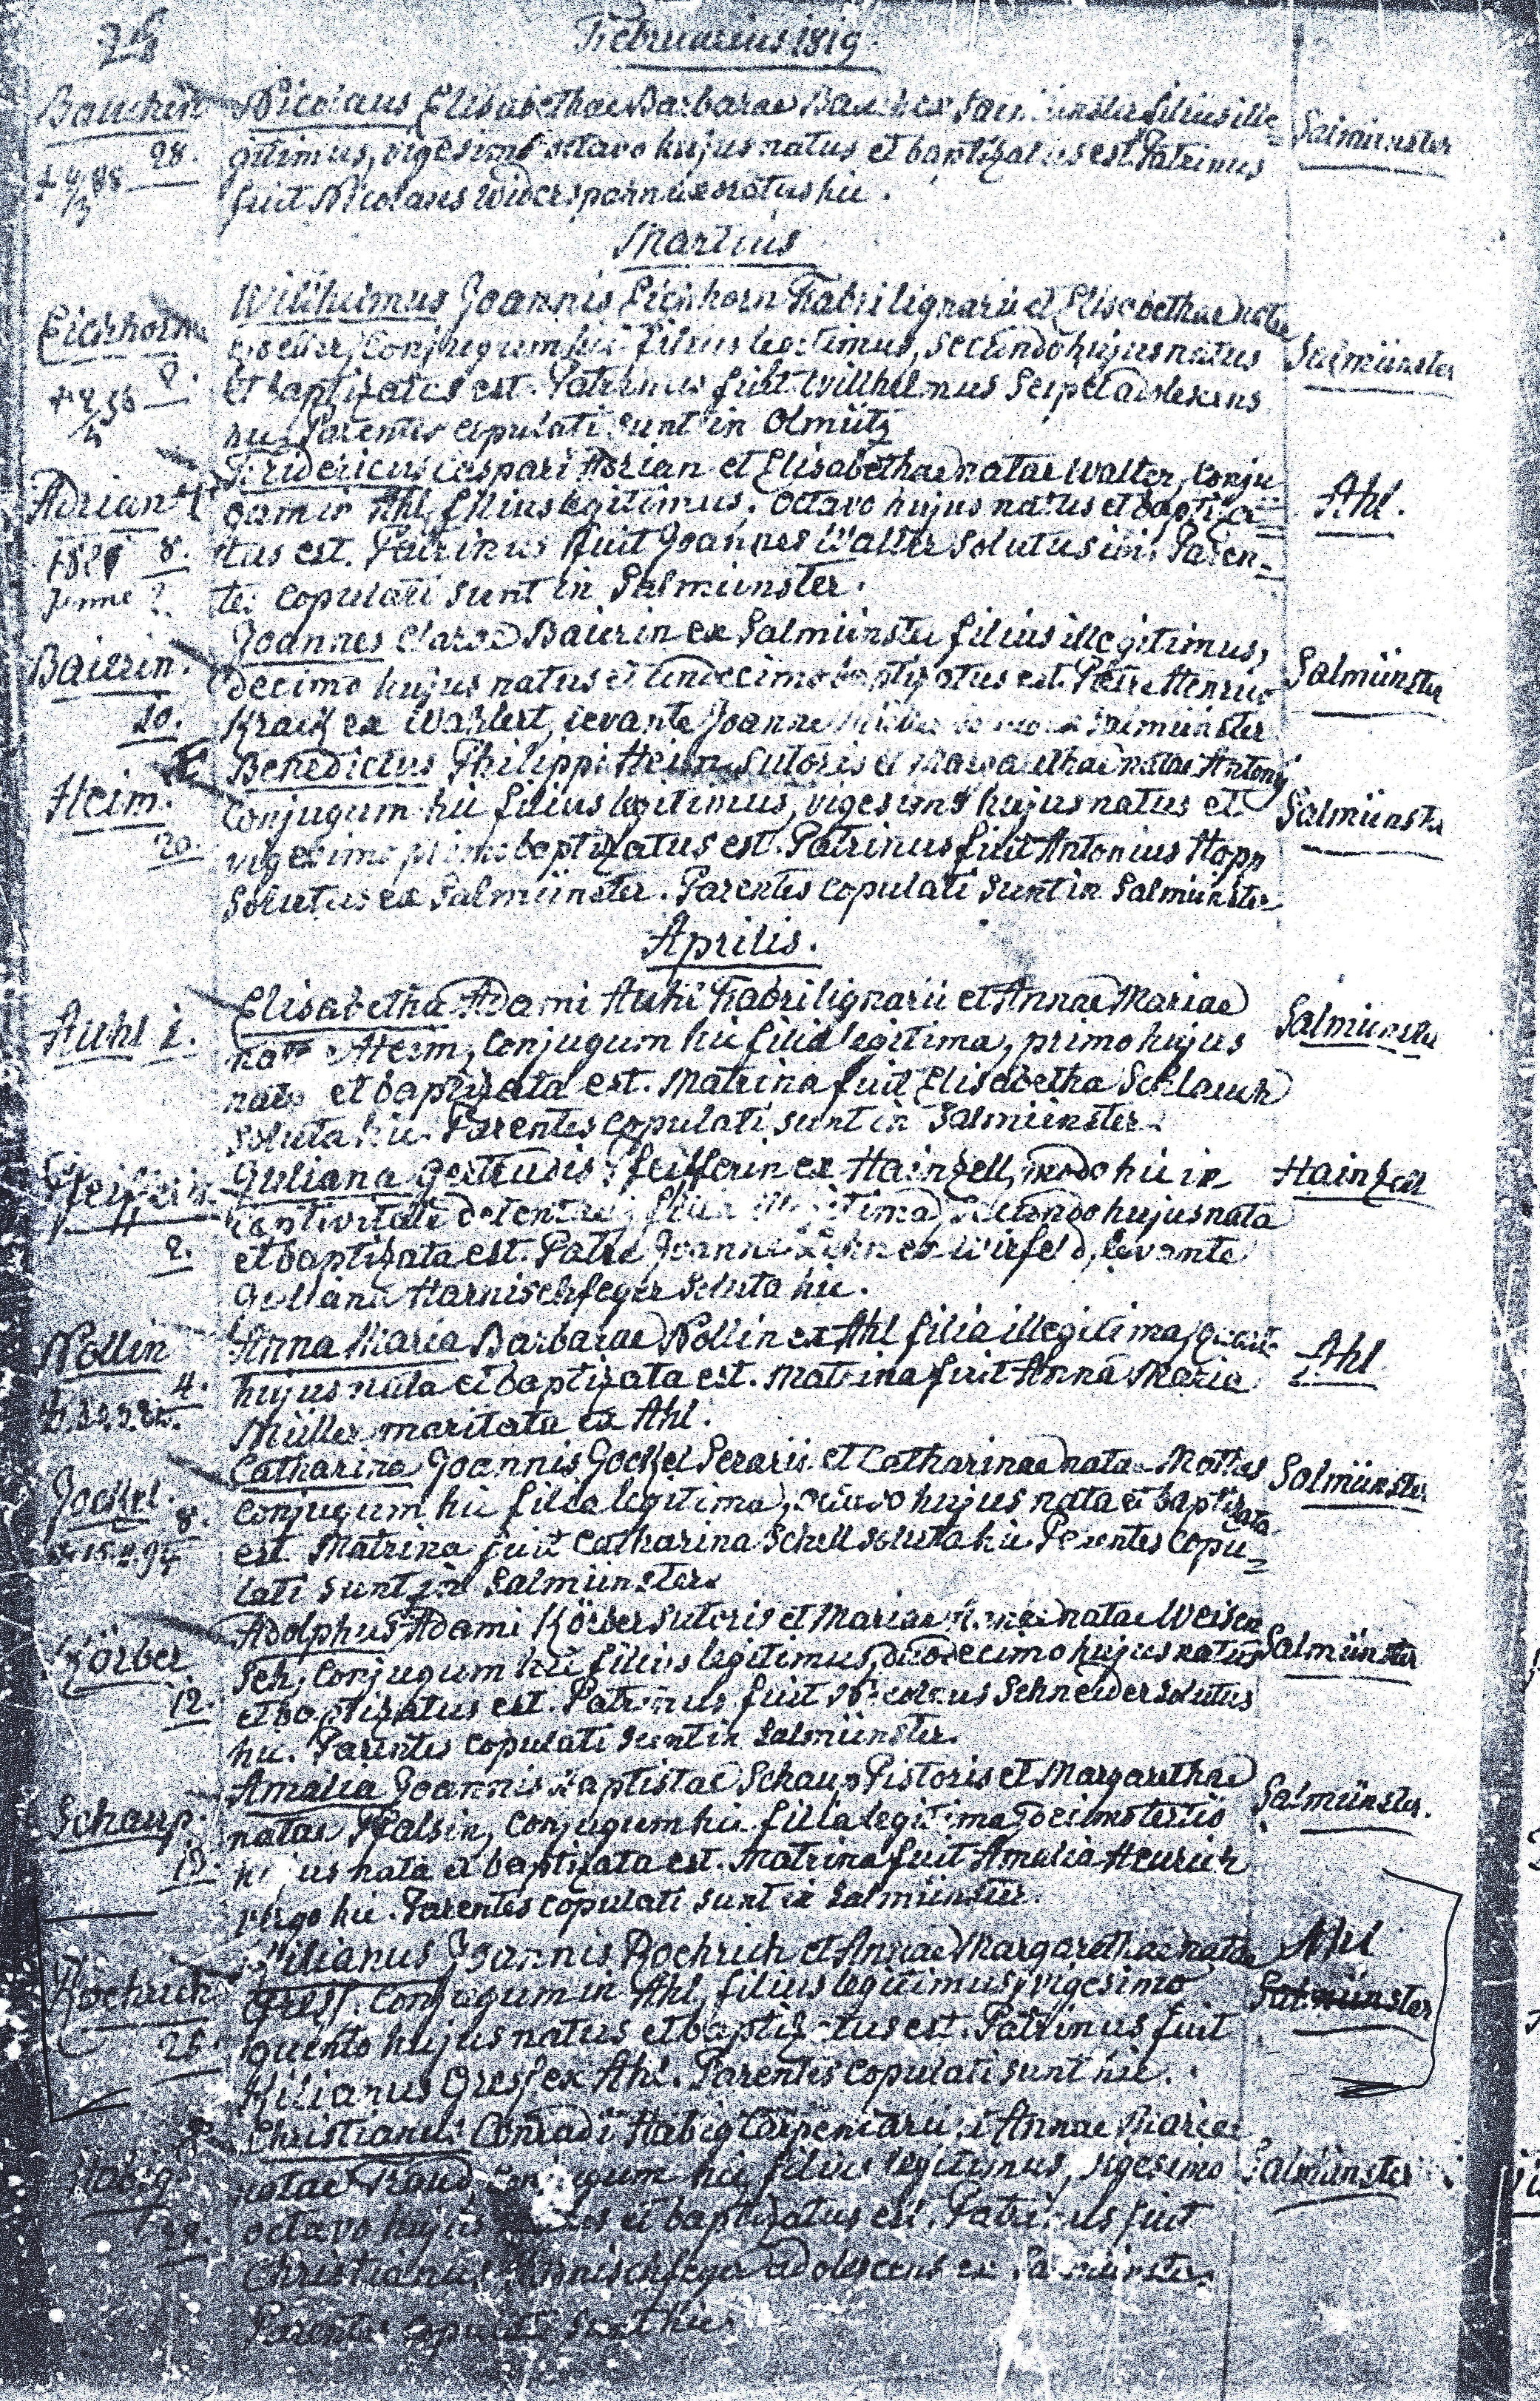 Februarius 1819.
Bauerin
28.
Nicolaus Elisabethae Barbarae ex filius ille=
gitimus, vigesimo octavo hujus natus et baptizatus est. Patrinus
fuit Nicolaus Widerspahn uxoratus hic.
Salmünster
Martius
Eichhorn
2.
Wilhelmus Joannis Eichhorn Fabri lignarii et Elisabethae natae
Conjugum hic filius legitimus, secundo hujus natus
et baptizatus est. Patrinus fuit Willhelmus Seipel adolescens
hic. Parentes copulati sunt in Olmütz
Salmünster
Adrian
8.
Fridericus Caspari Adrian et Elisabethae natae Walter, Conju
gum in Ahl, filius legitimus, octavo hujus natus et baptiza=
tus est. Patrinus fuit Joannes Walter solutus ibi. Paren=
tes copulati sunt in Salmünster.
Ahl.
Baierin.
10.
Joannes Clarae Baierin ex Salmünster filius illegitimus,
decimo hujus natus et undecimo baptizatus est. Patre Henrico
ex Wahlert, levante Joanne Salmünster
Salmünster
Heim.
20.
Benedictus Philippi Heim Sutoris et Margarethae natae Antony
Conjugum hic filius legitimus, vigesimo hujus natus et
vigesimo primo baptizatus est. Patrinus fuit Antonius Hopp
solutus ex Salmünster. Parentes copulati sunt in Salmünster
Salmünster
Aprilis.
Auhl 1.
Elisabetha Adami Auhl Fabri lignarii et Annae Mariae
natae Heim, Conjugum hic filia legitima, primo hujus
nata et baptizata est. Matrina fuit Elisabetha Schlauch
soluta hic. Parentes copulati sunt in Salmünster.
Salmünster
Pfeifferin
2.
Juliana Gertrudis Pfeifferin ex Hainzell, modo hic in
captivitate detentae, filia illegitima, secundo hujus nata
et baptizata est. Patre Joanne ex levante
Juliana Harnischfeger soluta hic.
Hainzell
Nollin
4.
Anna Maria Barbarae Nollin ex Ahl filia illegitima, quarto
hujus nata et baptizata est. Matrina fuit Anna Maria
Müller maritata ex Ahl.
Ahl
Jockel.
8.
Catharina Joannis Jockel et Catharinae natae
Conjugum hic filia legitima, octavo hujus nata et baptizata
est. Matrina fuit Catharina Schell soluta hic Parentes Copu=
lati sunt in Salmünster
Salmünster
Körber
12.
Adolphus Adami Körber Sutoris et Mariae natae Weisen
sch, Conjugum hic filius legitimus, duodecimo hujus natus
et baptizatus est. Patrinus fuit Nicolaus Schneider solutus
hic. Parentes copulati sunt in Salmünster.
Salmünster
Schaup.
13.
Amalia Joannis Baptistae Schaup Pistoris et Margarethae
natae Conjugum hic filia legitima, decimo tertio
hujus nata et baptizata est. Matrina fuit Amalia Heurich
virgo hic. Parentes copulati sunt in Salmünster.
Salmünster.
Roehrich
25.
Kilianus Joannis Roehrich et Annae Margarethae natae
Conjugum in Ahl, filius legitimus, vigesimo
quinto hujus natus et baptizatus est. Patrinus fuit
Kilianus ex Ahl. Parentes copulati sunt hic.
Ahl
Salmünster
Habig
28.
Christianus Conradi Habig Carpentarii et Annae Mariae
natae Conjugum hic, filius legitimus, vigesimo
octavo hujus natus et baptizatus est. Patrinus fuit
Christianus Harnischfeger adolescens ex Salmünster.
Parentes copulati sunt hic
Salmünster